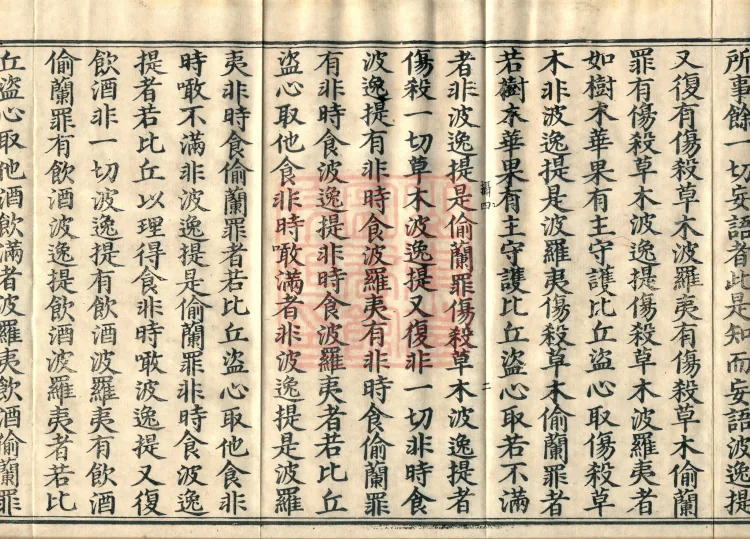 所事餘一切妄語者此是知而妄語波逸提
又復有傷殺草木波羅夷有傷殺草木偷蘭
罪有傷殺草木波逸提傷殺草木波羅夷者
如樹木華果有主守護比丘盜心取傷殺草
木非波逸提是波羅夷傷殺草木偷蘭罪者
若樹木華果有主守護比丘盜心取若不滿
者非波逸提是偷蘭罪傷殺草木波逸提者
傷殺一切草木波逸提又復非一切非時食
波逸提有非時食波羅夷有非時食偷蘭罪
有非時食波逸提非時食波羅夷者若比丘
盜心取他食非時噉滿者非波逸提是波羅
夷非時食偷蘭罪者若比丘盜心取他食非
時噉不滿非波逸提是偷蘭罪非時食波逸
提者若比丘以理得食非時噉波逸提又復
飲酒非一切波逸提有飲酒波羅夷有飲酒
偷蘭罪有飲酒波逸提飲酒波羅夷者若比
丘盜心取他酒飲滿者波羅夷飲酒偷蘭罪